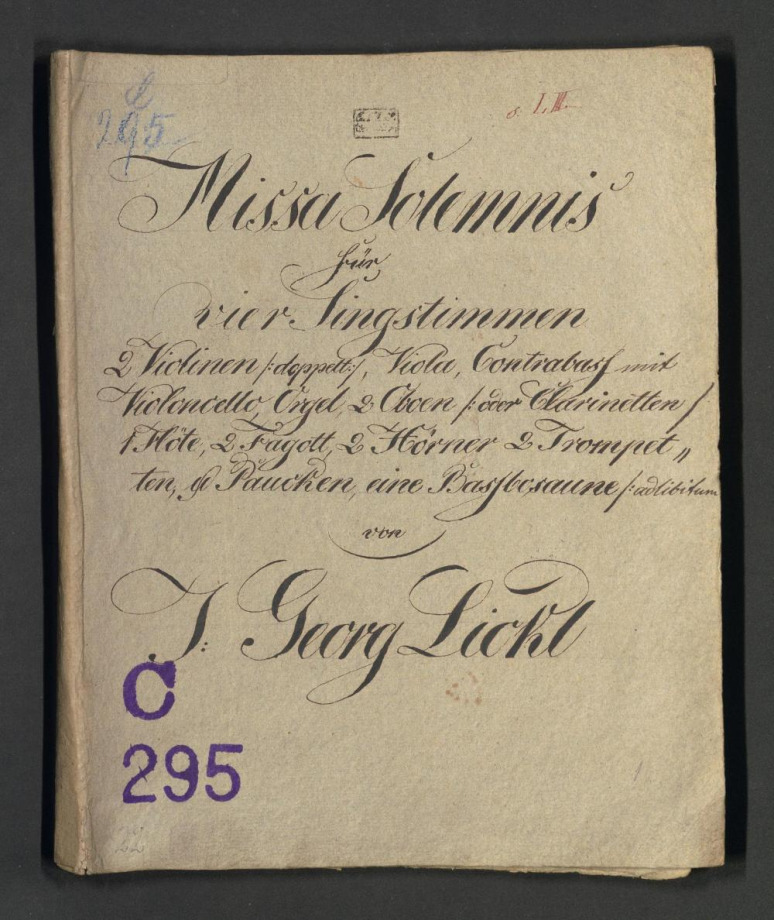 C
295
o. I, III.
Missa Solemnis
für
vier Singstimmen
2 Violinen /: doppelt :/, Viola, Contrabass mit
Violoncello, Orgel, 2 Oboen /: oder Clarinetten /
1 Flöte, 2 Fagott, 2 Hörner 2 Trompet„
ten, & Paucken, eine Bassbosaune /: adlibitum
von
J: Georg Lickl
C
295